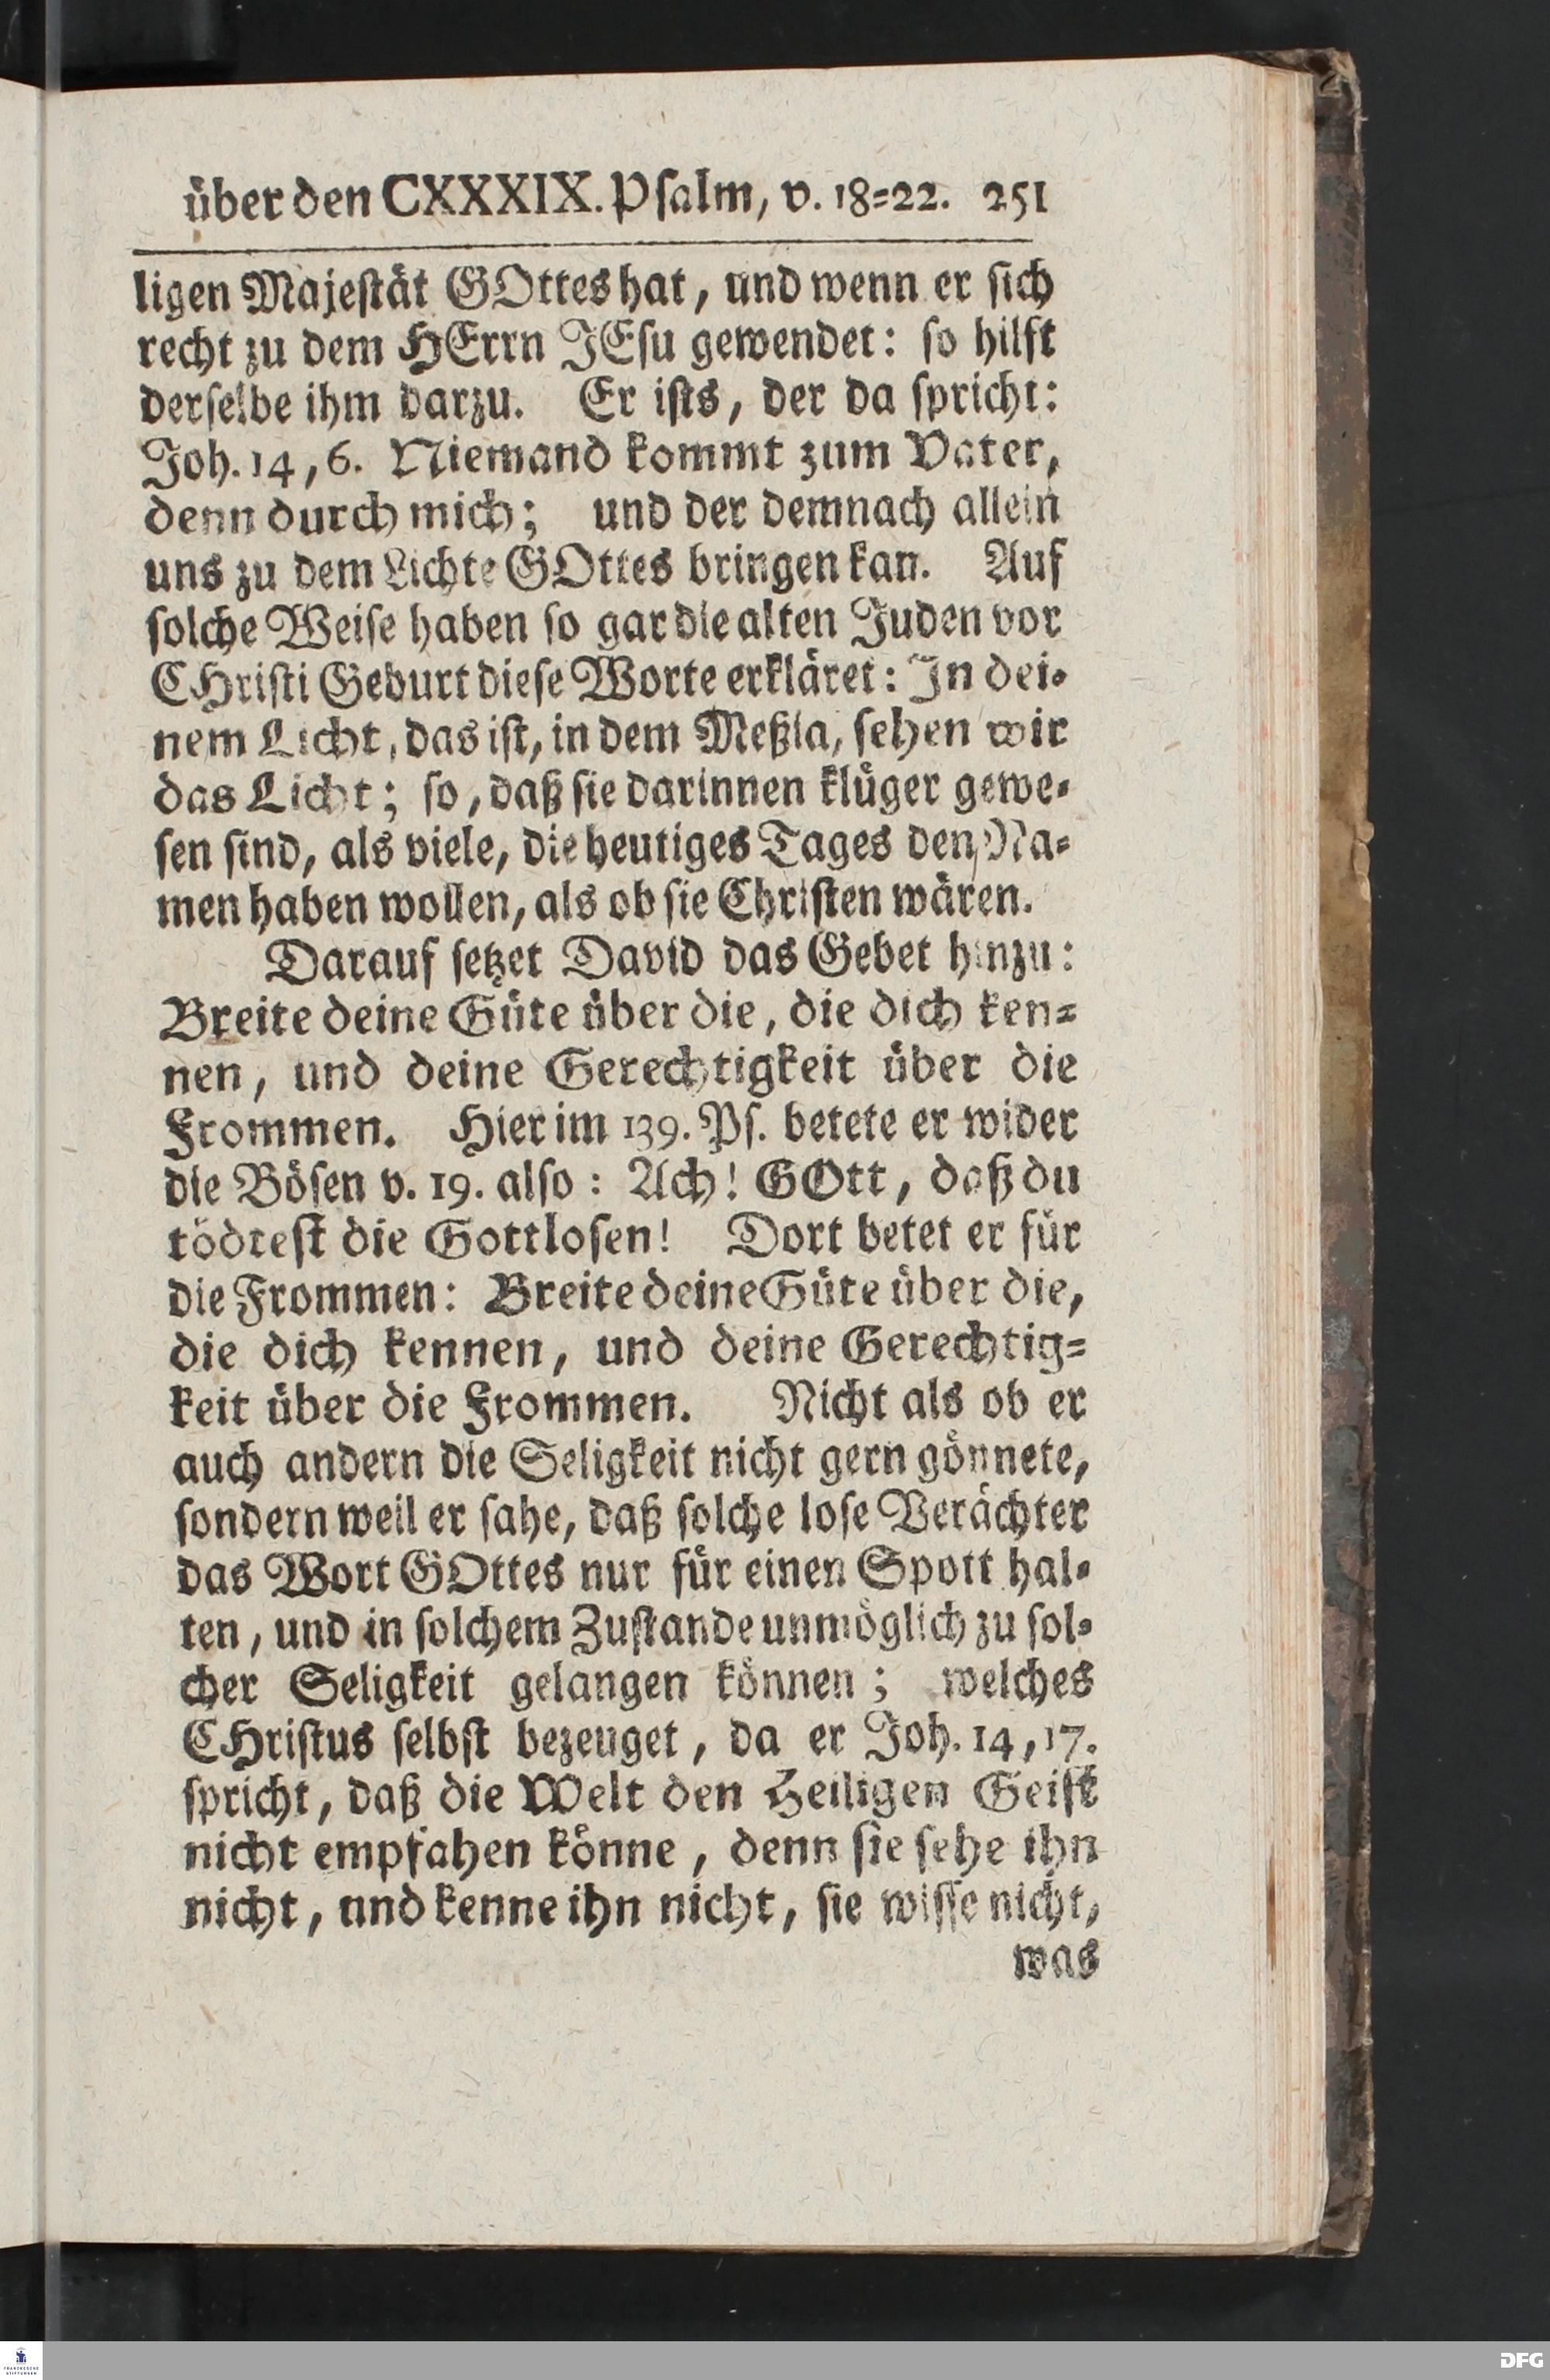 über den CXXXIX. Psalm, v. 18=22. 251
ligen Majestät GOttes hat, und wenn er sich
recht zu dem HErrn JEsu gewendet: so hilft
derselbe ihm darzu. Er ists, der da spricht:
Joh. 14, 6. Niemand kommt zum Vater,
denn durch mich; und der demnach allein
uns zu dem Lichte GOttes bringen kan. Auf
solche Weise haben so gar die alten Juden vor
CHristi Geburt diese Worte erkläret: In dei=
nem Licht, das ist, in dem Meßia, sehen wir
das Licht; so, daß sie darinnen klüger gewe=
sen sind, als viele, die heutiges Tages den Na=
men haben wollen, als ob sie Christen wären.
Darauf setzet David das Gebet hinzu:
Breite deine Güte über die, die dich ken=
nen, und deine Gerechtigkeit über die
Frommen. Hier im 139. Ps. betete er wider
die Bösen v. 19. also: Ach! GOtt, daß du
tödtest die Gottlosen! Dort betet er für
die Frommen: Breite deine Güte über die,
die dich kennen, und deine Gerechtig=
keit über die Frommen. Nicht als ob er
auch andern die Seligkeit nicht gern gönnete,
sondern weil er sahe, daß solche lose Verächter
das Wort GOttes nur für einen Spott hal=
ten, und in solchem Zustande unmöglich zu sol=
cher Seligkeit gelangen können; welches
CHristus selbst bezeuget, da er Joh. 14, 17.
spricht, daß die Welt den Heiligen Geist
nicht empfahen könne, denn sie sehe ihn
nicht, und kenne ihn nicht, sie wisse nicht,
was
FRANCKESCHE
STIFTUNGEN
DFG